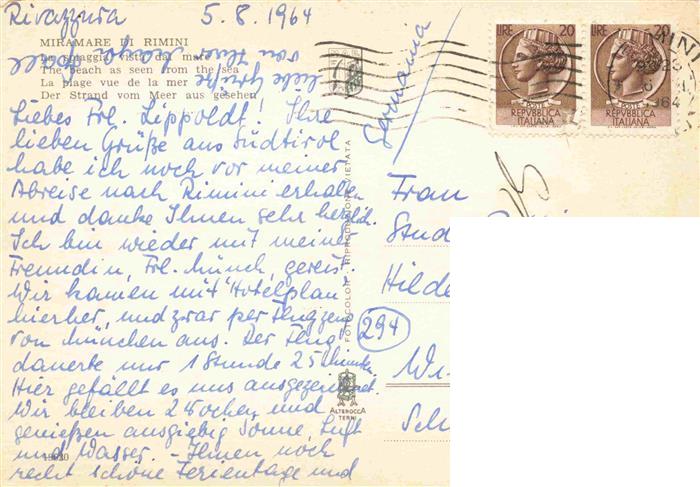 Rivazzura 5.8.1964
MIRAMARE DI RIMINI
La spiaggia vista dal mare
The beach as seen from the sea
La plage vue de la mer
Der Strand vom Meer aus gesehen
Liebes Frl. Lippoldt! Ihre
lieben Grüße aus Südtirol
habe ich noch vor meiner
Abreise nach Rimini erhalten
und danke Ihnen sehr herzlich.
Ich bin wieder mit meiner
Freundin, Frl. Münch, gereist.
Wir kamen mit "Hotelplan
hierher, und zwar per Flugzeug
von München aus. Der Flug
dauerte nur 1 Stunde 25 Minuten.
Hier gefällt es uns ausgezeichnet.
Wir bleiben 2 Wochen und
genießen ausgiebig Sonne, Luft
und Wasser. - Ihnen noch
recht schöne Ferientage und
liebe Grüße
von Ihrer
19630
FOTOCOLOR - RIPRODUZIONE VIETATA
ALTEROCCA
TERNI
LIRE 20
POSTE
REPVBBLICA
ITALIANA
LIRE 20
POSTE
REPVBBLICA
ITALIANA
1964
Germania
Frau
Stud
Hilde
294
Wi
Sch